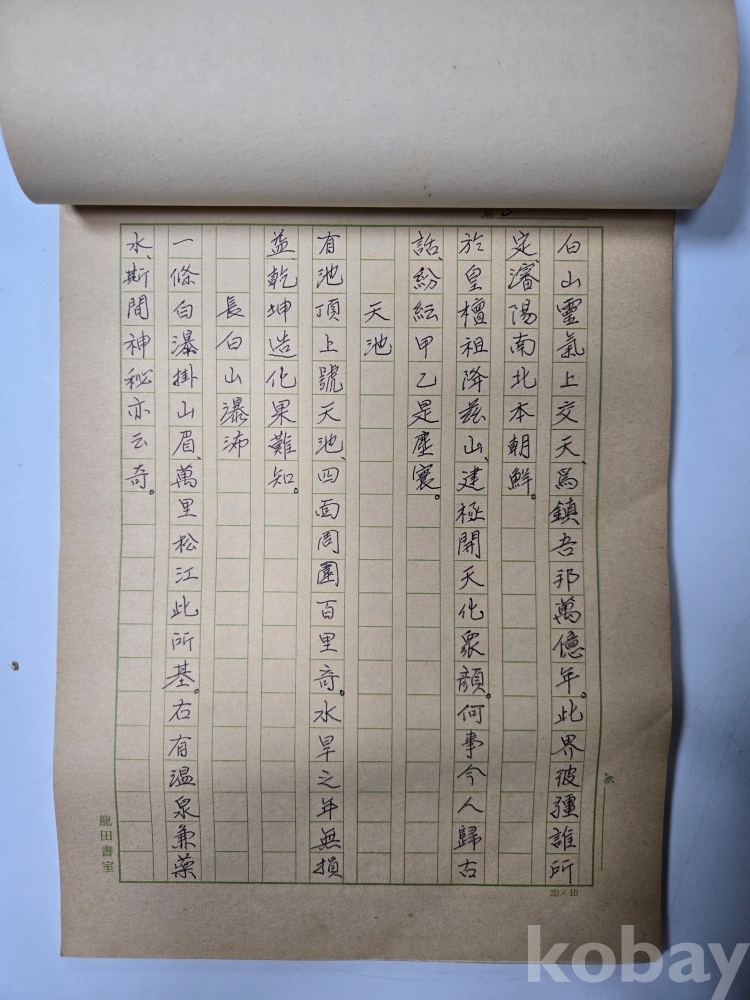 白山靈氣上交天、爲鎮吾邦萬億年。此界彼疆誰所
定、瀋陽南北本朝鮮。
於皇檀祖降玆山、建極開天化衆顔。何事今人歸古
話、紛紜甲乙是塵寰。
天池
有池頂上號天池、四面周圍百里奇。水旱之年無損
益、乾坤造化果難知。
長白山瀑沛
一條白瀑掛山眉、萬里松江此所基。右有温泉兼藥
水、斯間神秘亦云奇。
龍田書室
20×10
kobay